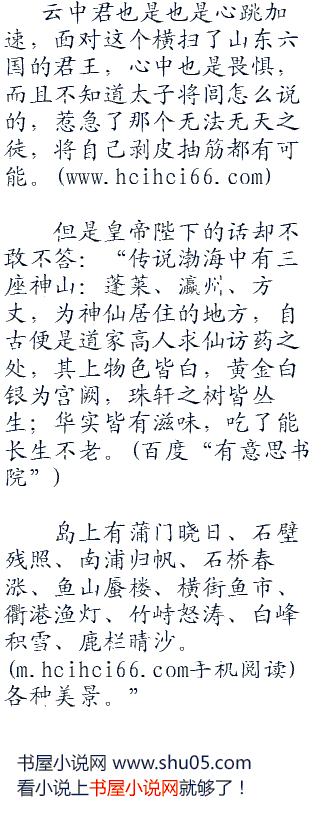 云中君也是也是心跳加
速，面对这个横扫了山东六
国的君王，心中也是畏惧，
而且不知道太子将闾怎么说
的，惹急了那个无法无天之
徒，将自己剥皮抽筋都有可
能。(www.hcihci66.com)
但是皇帝陛下的话却不
敢不答：“传说渤海中有三
座神山：蓬莱、瀛州、方
丈，为神仙居住的地方，自
古便是道家高人求仙访药之
处，其上物色皆白，黄金白
银为宫阙，珠轩之树皆丛
生；华实皆有滋味，吃了能
长生不老。(百度“有意思书
院”)
岛上有蒲门晓日、石壁
残照、南浦归帆、石桥春
涨、鱼山蜃楼、横街鱼市、
衢港渔灯、竹峙怒涛、白峰
积雪、鹿栏晴沙。
(m.hcihci66.com手机阅读)
各种美景。”
书屋小说网 www.shu05.com
看小说上书屋小说网就够了！